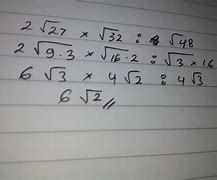 2 √27 × √32 : √48
2 √9·3 × √16·2 : √3 × 16
6 √3 × 4 √2 : 4 √3
6 √2 //